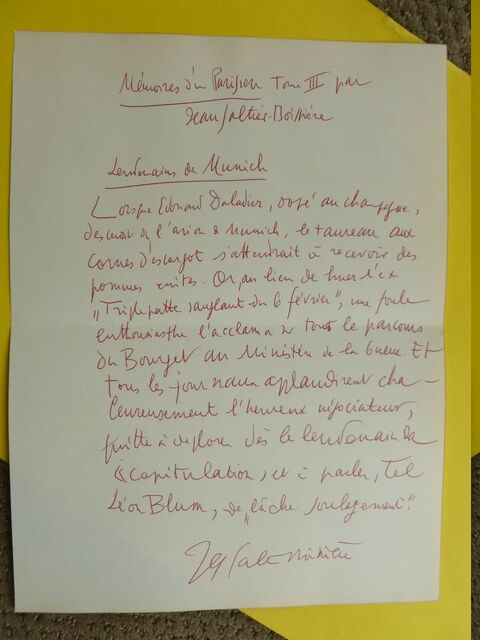 Mémoires d'un Parisien Tome III par
Jean Galtier-Boissière
Lendemains de Munich
Lorsque Edouard Daladier, dopé au champagne,
descendit de l'avion de Munich, le taureau aux
cornes d'escargot s'attendait à recevoir des
pommes cuites. Or, au lieu de huer l'ex
"Triplepatte sanglant du 6 février", une foule
enthousiaste l'acclama sur tout le parcours
du Bourget au Ministère de la Guerre. Et
tous les journaux applaudirent cha-
leureusement l'heureux négociateur,
quitte à déplorer dès le lendemain la
capitulation, et à parler, tel
Léon Blum, de "lâche soulagement".